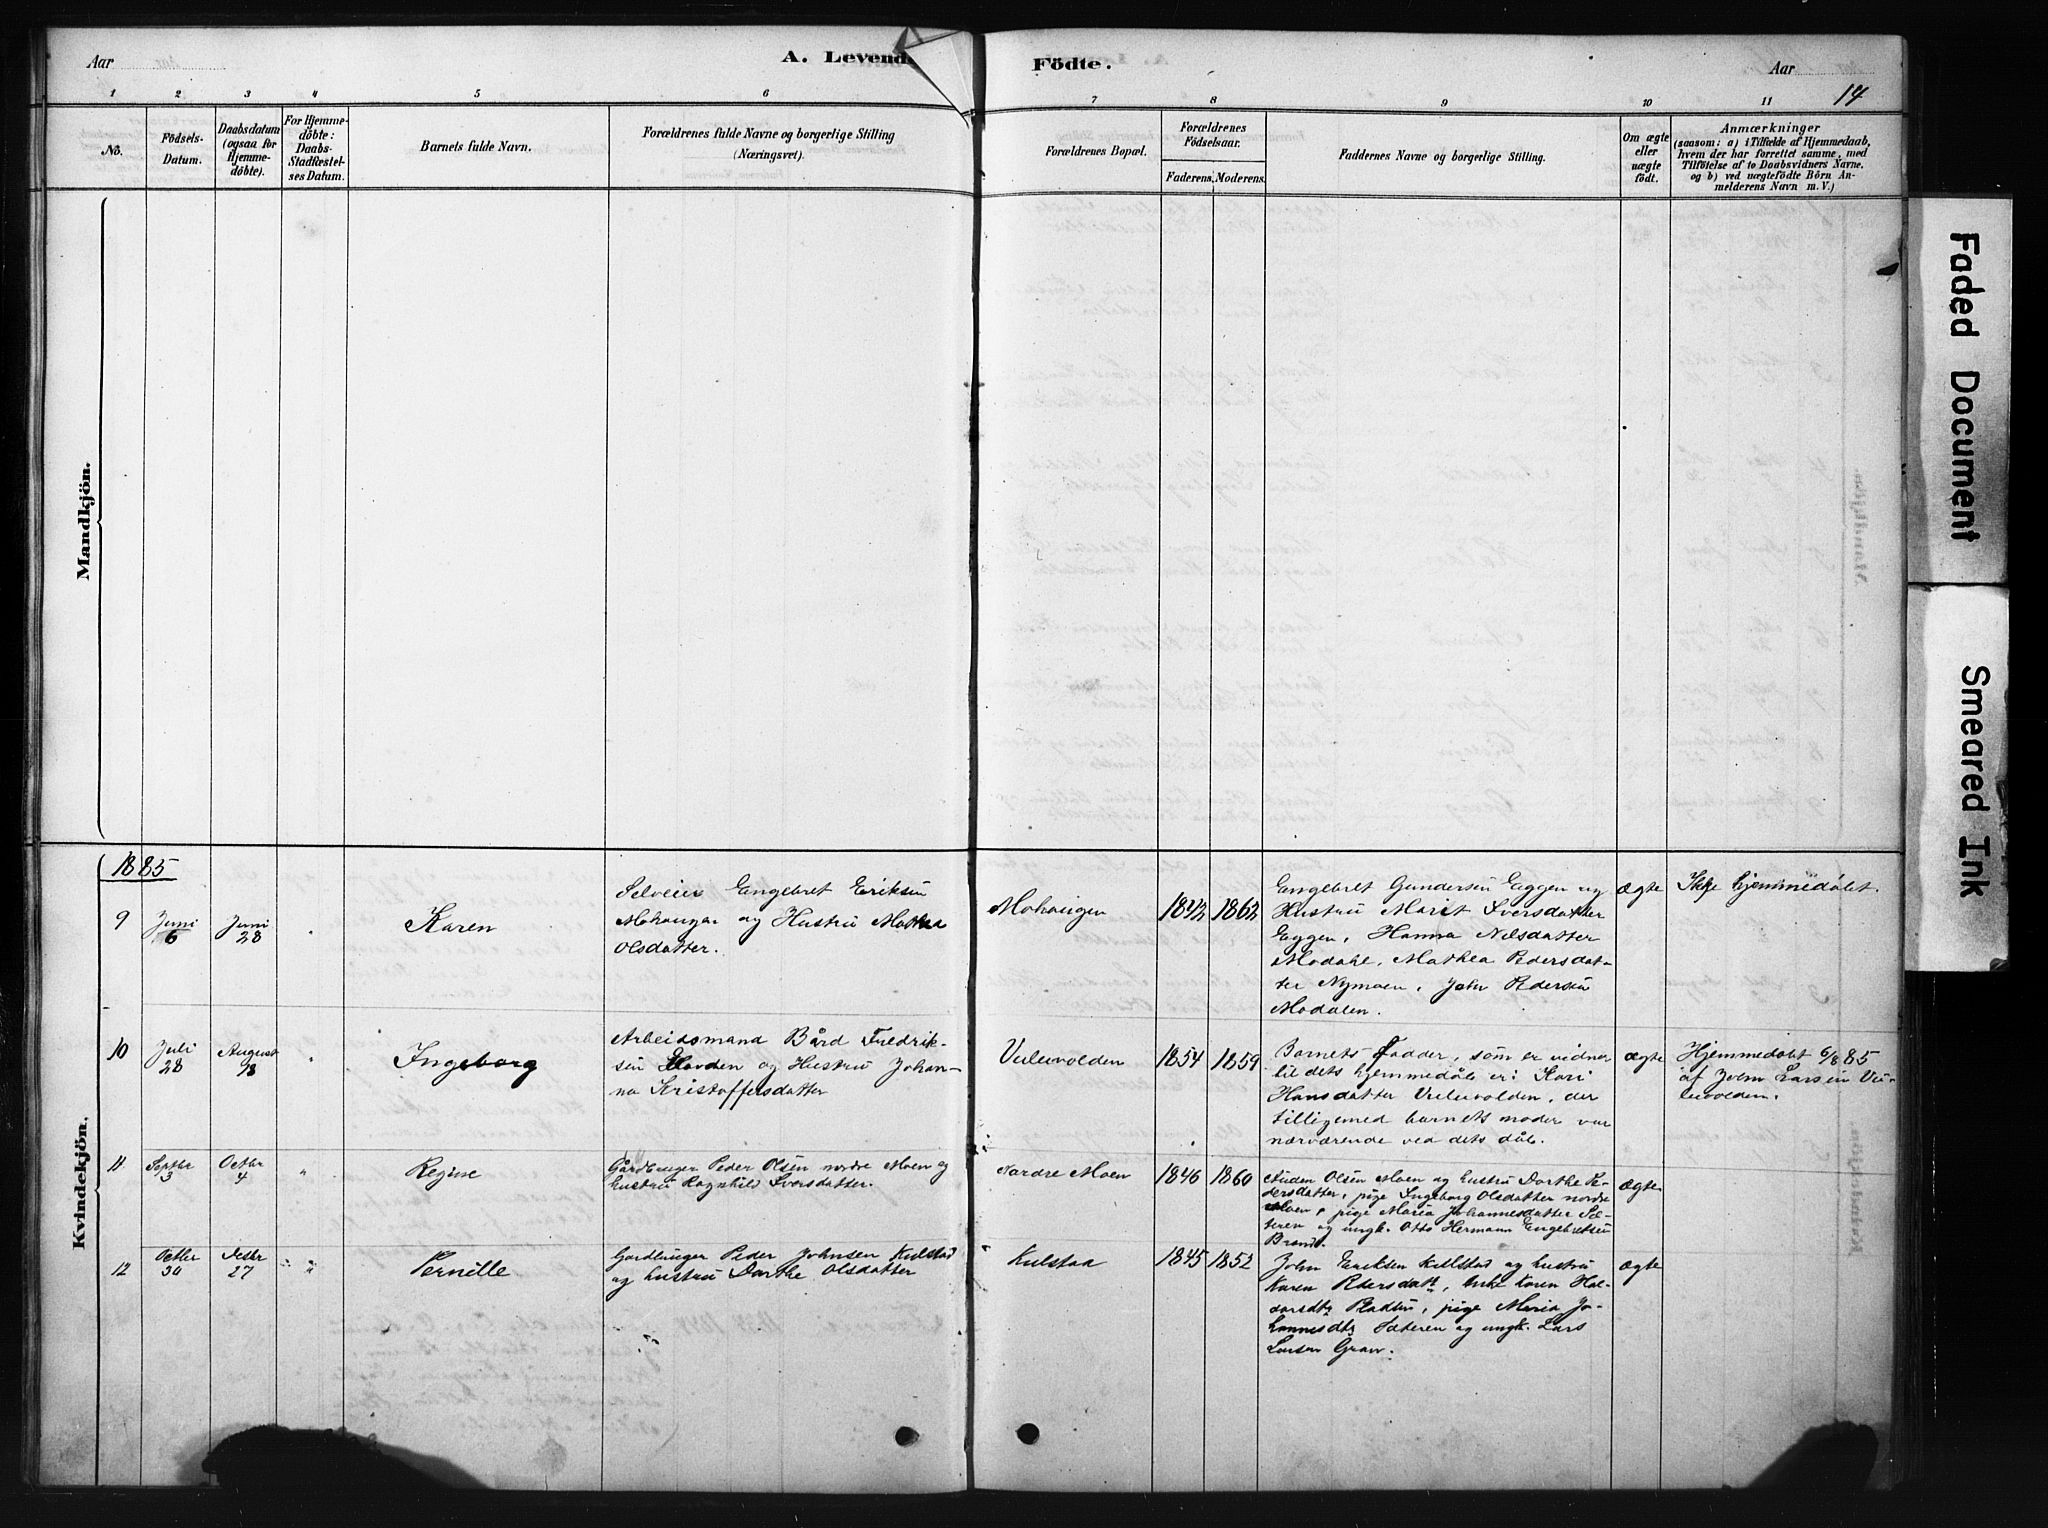 Aar
A. Levende
Födte.
Aar
14
1 2 3 4 5 6 7 8 9 10 11
No.
Födsels-Datum.
Daabsdatum (ogsaa for Hjemme-döbte).
For Hjemme-döbte: Daabs-Stadfæstel-ses Datum.
Barnets fulde Navn.
Forældrenes fulde Navne og borgerlige Stilling (Næringsvei).
Forældrenes Bopæl.
Forældrenes Födselsaar.
Faderens. Moderens.
Faddernes Navne og borgerlige Stilling.
Om ægte eller uægte födt.
Anmærkninger
(saasom: a) i Tilfælde af Hjemmedaab,
hvem der har forrettet samme, med
Tilföielse af to Daabsvidners Navne,
og b) ved uægtefödte Börn An-
melderens Navn m. V.)
Mandkjön.
Kvindekjön.
1885
9 Juni 6 Juni 28 " Karen
Selveier Engebret Eriksen
Mohaugen og Hustru Mathea
Olsdatter.
Mohaugen 1842 1862
Engebret Gundersen Eggen og
Hustru Marit Iversdatter
Eggen, Hanna Nilsdatter
Modahl, Mathea Pedersdat-
ter Nymoen, John Pedersen
Modalen.
ægte
Ikke hjemmedøbt.
10 Juli 28 August 8 " Ingeborg
Arbeidsmand Bård Fredrik-
sen Hovden og Hustru Johan-
na Kristoffersdatter
1854 1859
Barnets Fadder, som er vidner
til dets hjemmedåb er: Kari
Hansdatter, der
tilligemed barnets moder var
nærværende ved dets dåb.
ægte
Hjemmedøbt 6/8 85
af John Larsen
11 Septbr 3 Octbr 4 " Regine
Gårdbruger Peder Olsen nordre Moen og
hustru Ragnhild Iversdatter.
Nordre Moen 1846 1860
Auden Olsen Moen og hustru Dorthe Pe-
dersdatter, pige Ingeborg Olsdatter nordre
Moen, pige Maria Johannesdatter Sæ-
teren og ungk. Otto Hermann Engebretsen
ægte
12 Octbr 30 Decbr 27 " " Pernille
Gardbruger Peder Johnsen Kulstad
og hustru Dorthe Olsdatter
Kulstad 1845 1852
John Eriksen Kulstad og hustru
Karen Pedersdatt, Enke Karen Hal-
vorsdtr Pladsen, pige Maria Jo-
hannesdtr Sæteren og ungk. Lars
Larsen Grav.
ægte
Faded Document
Smeared Ink